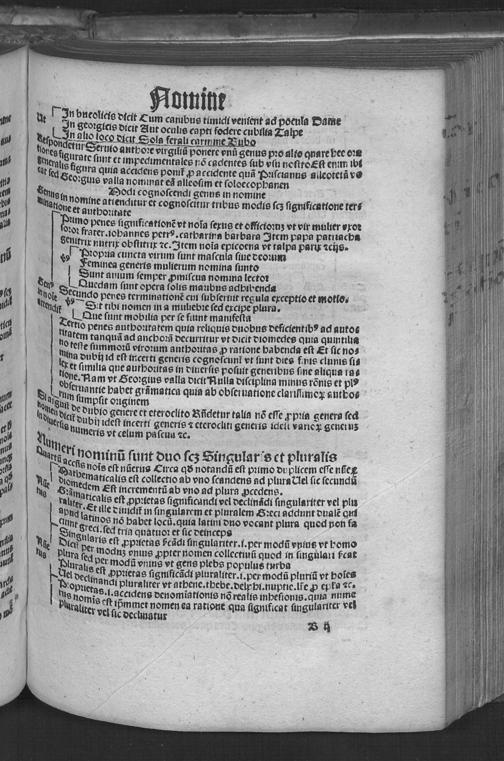 Nomine
Ut In bucolicis dicit Cum canibus timidi venient ad pocula Dame
In georgicis dicit Aut oculis capti fodere cubilia Talpe
In alio loco dicit Sola ferali carmine Bubo
Respondetur Seruio authore virgiliū ponere vnū genus pro alio quare hec ora
tiones figurate sunt et impedimentales nō cadentes sub vsu nostro Est enim ibi
generalis figura quia accidens ponit̄ p̄ accidente quā Priscianus alleotetā vo
cat sed Georgius valla nominat eā alleosim et soloecophanen
Modi cognoscendi genus in nomine
Genus in nomine attenditur et cognoscitur tribus modis scz significatione ter
minatione et authoritate
Primo penes significationē vt noīa sexus et officiorū vt vir mulier vxor
soror frater. Johannes petr⁹. catharina barbara Item papa patriarcha
genitrix nutrix obstitrix ꝛc. Item noīa epicoena vt talpa parix ꝛcijs.
Propria cuncta virum sunt mascula siue deorum
Feminea generis mulierum nomina sunto
Sunt auium semper ꝓmiscua nomina lector
Quedam sunt opera solis maribus adhibenda
Secundo penes terminationē cui subseruit regula exceptio et motio.
Sit tibi nomen in a muliebre sed excipe plura.
Que sunt mobilia per se fiunt manifesta
Tertio penes authoritatem quia reliquis duobus deficientib⁹ ad autori
ritatem tanquā ad anchorā decurritur vt dicit diomedes quia quintilia
no teste summorū virorum authoritas ꝓ ratione habenda est Et sic no
mina dubij id est incerti generis cognoscunt̄ vt sunt dies finis clunis si
lex et similia que authoritas in diuersis posuit generibus sine aliqua ra
tione. Nam vt Georgius valla dicit Nulla disciplina minus rōnis et pl⁹
obseruantie habet grāmatica quia ab obseruatione clarissimorū autho
rum sumpsit originem
Si arguit̄ de dubio genere et eteroclito Rn̄detur talia nō esse ꝓpria genera sed
nomen dicit̄ dubij idest incerti generis ⁊ eterocliti generis ideli varior̄ generum
in diuersis numeris vt celum pascua ꝛc.
Numeri nominū sunt duo scz Singularis et pluralis
Quartū accn̄s noīs est nūerus Circa qđ notandū est primo duplicem esse nūer̄
Mathematicalis est collectio ab vno scandens ad plura Uel sic secundū
diomedem Est incrementū ab vno ad plura ꝓcedens.
Grāmaticalis est ꝓprietas significandi vel declinādi singulariter vel plu
raliter. Et ille diuidit̄ in singularem et pluralem Greci addunt dualē qui
apud latinos nō habet locū. quia latini duo vocant plura quod non fa
ciunt greci. sed tria quatuor et sic deinceps
Singularis est ꝓprietas sc̄ādi singulariter. i. per modū vnius vt homo
Dicit̄ per modū vnius ꝓpter nomen collectiuū quod in singulari sc̄at
plura sed per modū vnius vt gens plebs populus turba
Pluralis est ꝓprietas significādi pluraliter. i. per modū pluriū vt hoīes
Uel declinandi pluraliter vt athene. thebe. delphi. nuptie.
Proprietas. i. accidens denominationis nō realis inhesionis. quia nume
rus nominis est īpm̄met nomen ea ratione qua significat singulariter vel
pluraliter vel sic declinatur
B ij